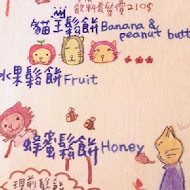 飲料套餐價210$
貓王鬆餅Banana &
peanut butt
水果鬆餅Fruit
蜂蜜鬆餅Honey
現煎鬆餅